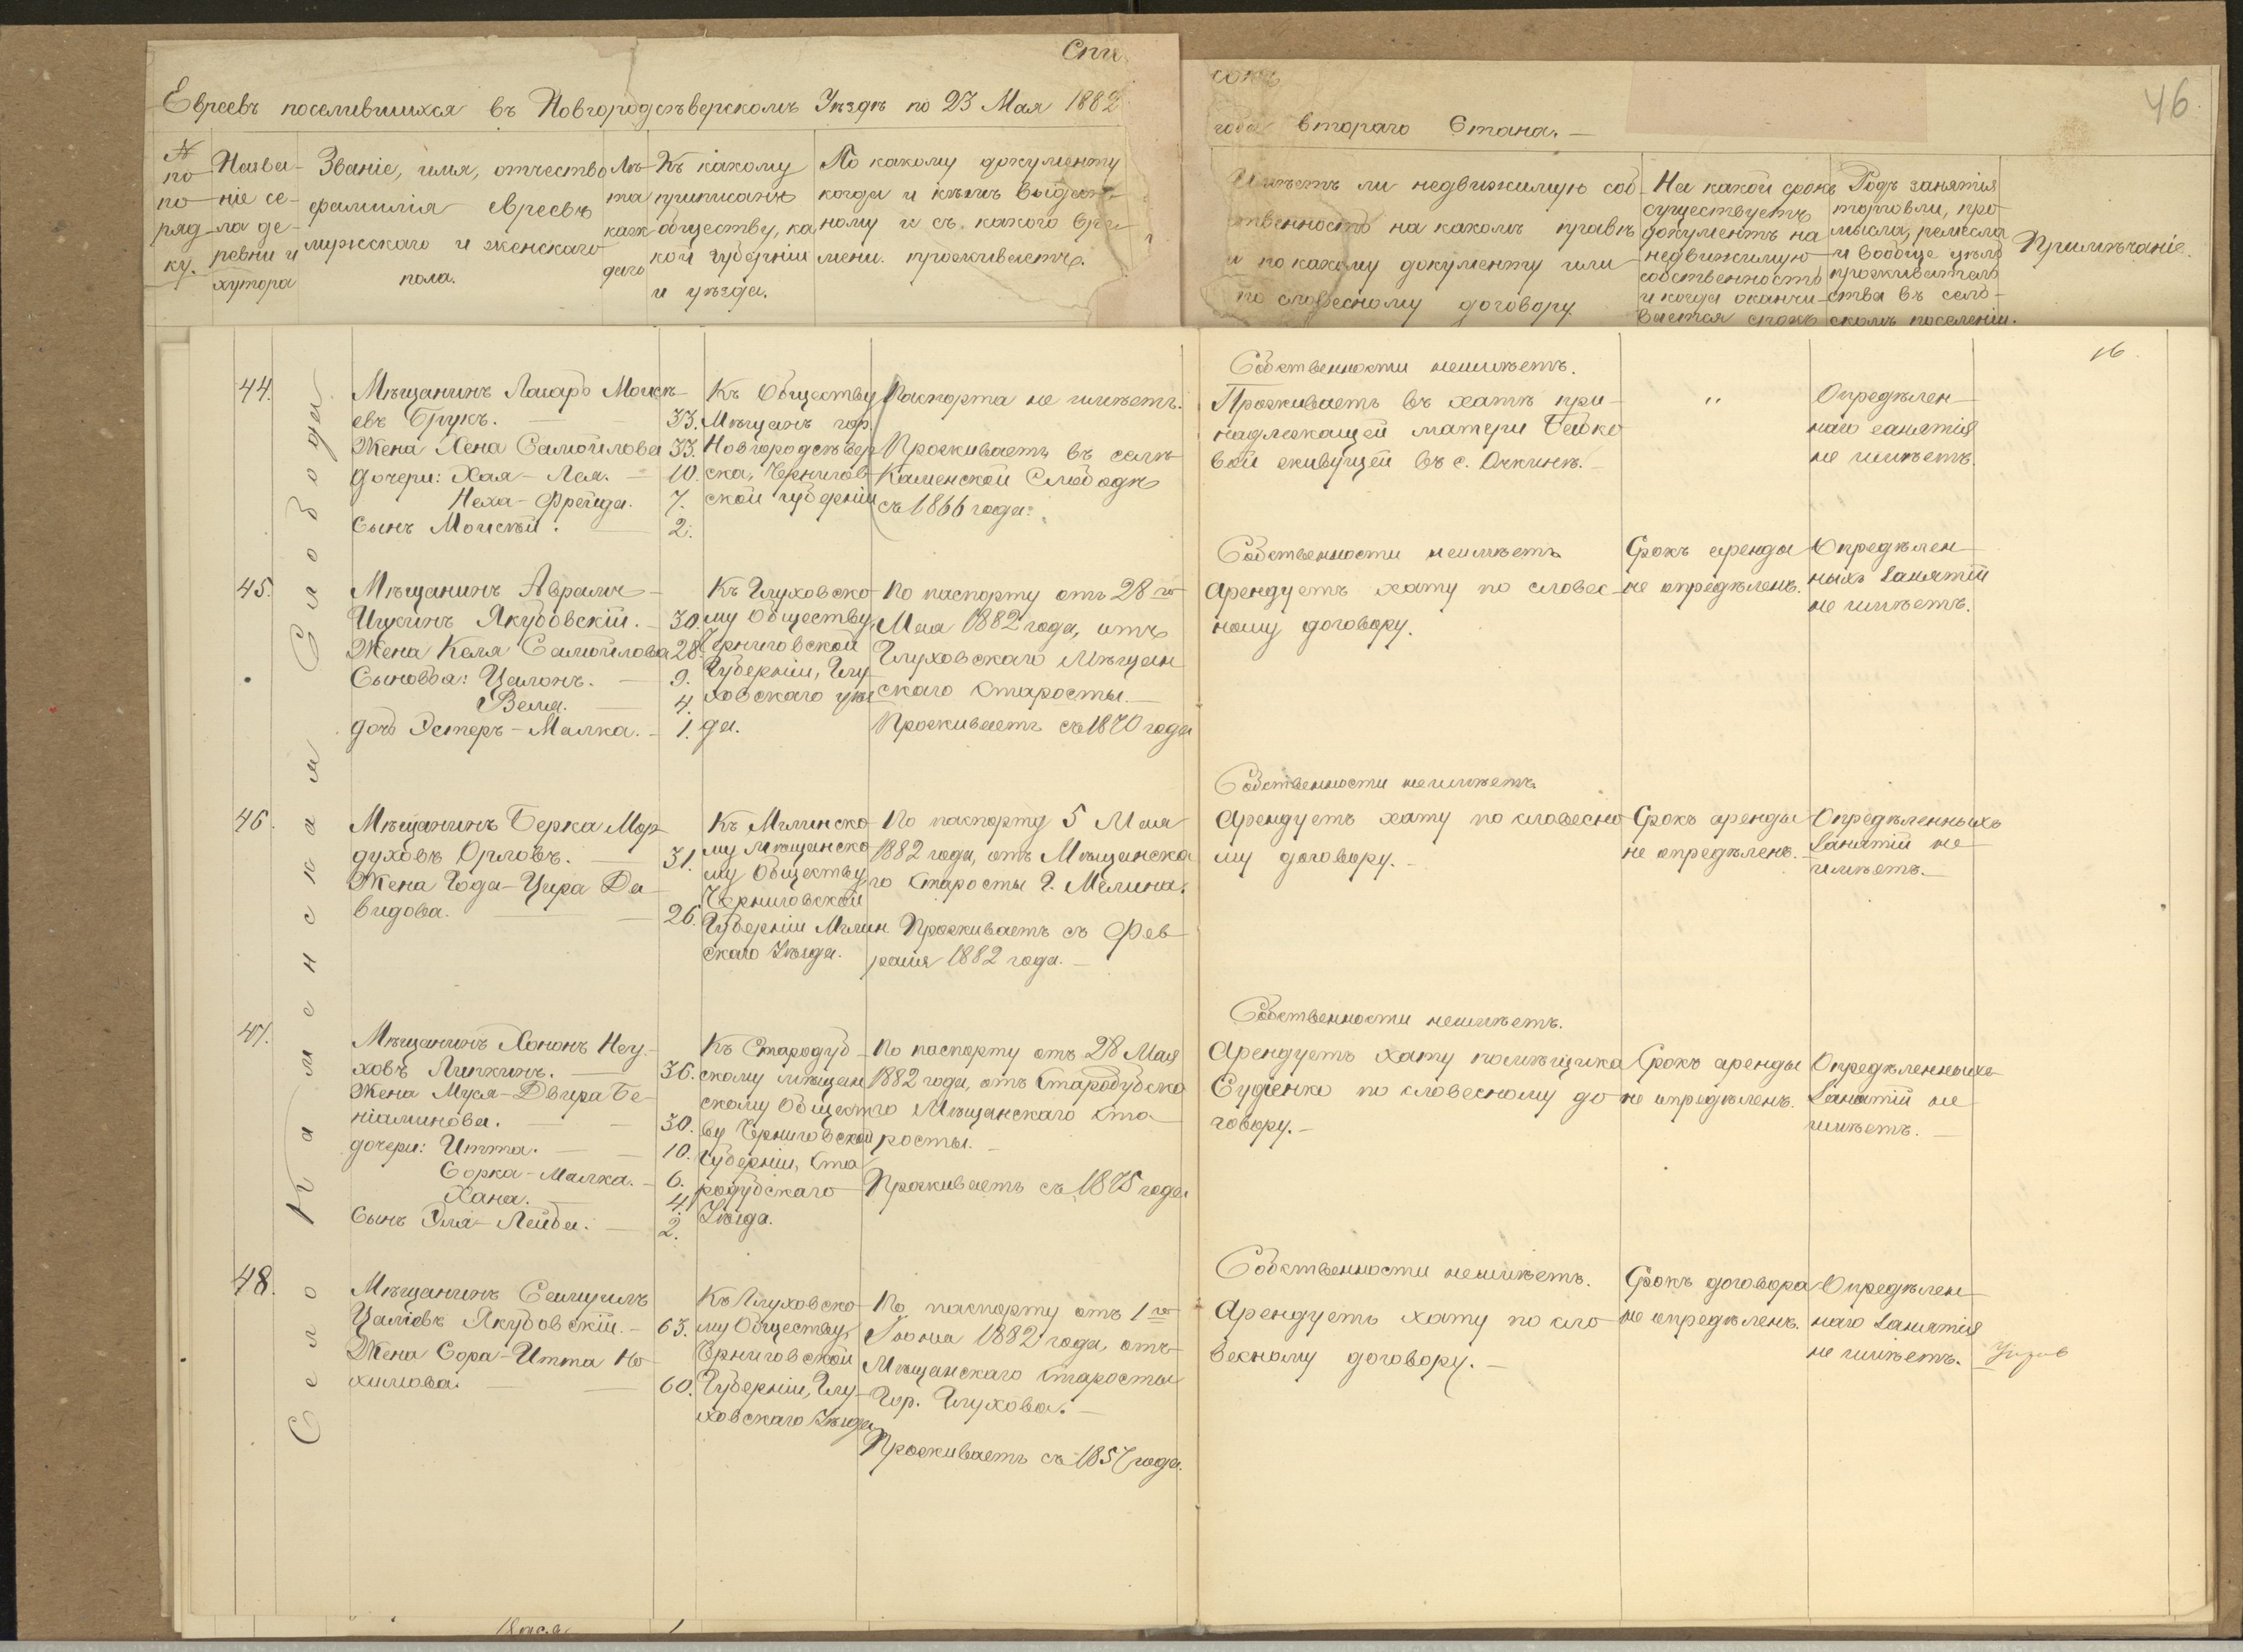 Спи
сокъ
46
Евреевъ поселившихся въ Новгородсѣверскомъ Уѣздѣ по 23 Мая 1882
года втораго Стана.
№ по поряд ку.
Назва-
ніе се-
ла де-
ревни и
хутора
Званіе, имя, отчество
фамилія евреевъ
мужскаго и женскаго
пола.
Лѣ-
та
каж
даго
Къ какому
приписанъ
обществу, ка
кой губерніи
и уѣзда.
По какому документу
когда и кѣмъ выдан-
ному и съ какого вре-
мени проживаетъ.
Имѣетъ ли недвижимую соб-
ственность на какомъ правѣ
и по какому документу или
по словесному договору
На какой срокъ
существуетъ
документъ на
недвижимую
собственность
и когда оканчи-
вается срокъ
Родъ занятія
торговли, про-
мысла, ремесла
и вообще цѣль
прожительства въ сель-
скомъ поселеніи.
Примѣчаніе.
Село Каменская Слобода
44.
Мѣщанинъ Лазарь Моисѣ-
евъ Брукъ. 33.
Жена Хена Самойлова 33.
Дочери: Хая-Лея. 10.
Неха-Фрейда. 7.
Сынъ Моисѣй. 2.
Къ Обществу
Мѣщанъ гор.
Новгородсѣвер
ска, Чернигов-
ской губерніи
Паспорта не имѣетъ.
Проживаетъ въ селѣ
Каменской Слободѣ
съ 1866 года.
Собственности неимѣетъ.
Проживаетъ въ хатѣ при-
надлежащей матери
вой живущей въ с. Очкинѣ.
"
Опредѣлен-
наго занятія
не имѣетъ.
45.
Мѣщанинъ Аврамъ
Ицкинъ Якубовскій. 30.
Жена Келя Самойлова 28.
Сыновья: Цалонъ. 9.
Велля. 4.
дочь Эстеръ-Малка. 1.
Къ Глуховско-
му Обществу,
Черниговской
Губерніи, Глу-
ховскаго уѣз
да.
По паспорту отъ 28го
Мая 1882 года, отъ
Глуховскаго Мѣщан
скаго Старосты.
Проживаетъ съ 1870 года
Собственности неимѣетъ
Арендуетъ хату по словес-
ному договору.
Срокъ аренды
не опредѣленъ.
Опредѣлен-
ныхъ занятій
не имѣетъ.
46.
Мѣщанинъ Берка Мор-
духовъ Орловъ. 31.
Жена Года-Цира Да-
видова. 26.
Къ Мглинско-
му мѣщанско-
му Обществу,
Черниговской
Губерніи Мглин
скаго Уѣзда.
По паспорту 5 Мая
1882 года, отъ Мѣщанска
го Старосты г. Мглина.
Проживаетъ съ Фев-
раля 1882 года.
Собственности неимѣетъ.
Арендуетъ хату по словесно
му договору.
Срокъ аренды
не опредѣленъ.
Опредѣленныхъ
занятій не
имѣетъ.
47.
Мѣщанинъ Хононъ Неу-
ховъ Липкинъ. 36.
Жена Муся-Двира Бе-
ніаминова. 30.
дочери: Итта. 10.
Сорка-Малка. 6.
Хана. 4.
Сынъ Эля-Лейба. 2.
Къ Стародуб-
скому мѣщан
скому Общест
ву Черниговской
Губерніи, Ста
родубскаго
Уѣзда.
По паспорту отъ 28 Мая
1882 года, отъ Стародубска
го Мѣщанскаго Ста-
росты.
Проживаетъ съ 1875 года
Собственности неимѣетъ.
Арендуетъ хату помѣщика
Судіенко по словесному до
говору.
Срокъ аренды
не опредѣленъ.
Опредѣленныхъ
занятій не
имѣетъ.
48.
Мѣщанинъ Самуилъ
Цаліевъ Якубовскій. 63.
Жена Сора-Итта Но-
химова. 60.
Къ Глуховско-
му Обществу,
Черниговской
Губерніи, Глу-
ховскаго Уѣзда
По паспорту отъ 1го
Іюня 1882 года, отъ
Мѣщанскаго Старосты
Гор. Глухова.
Проживаетъ съ 1857 года.
Собственности неимѣетъ.
Арендуетъ хату по сло-
весному договору.
Срокъ договора
не опредѣленъ.
Опредѣлен-
наго занятія
не имѣетъ.